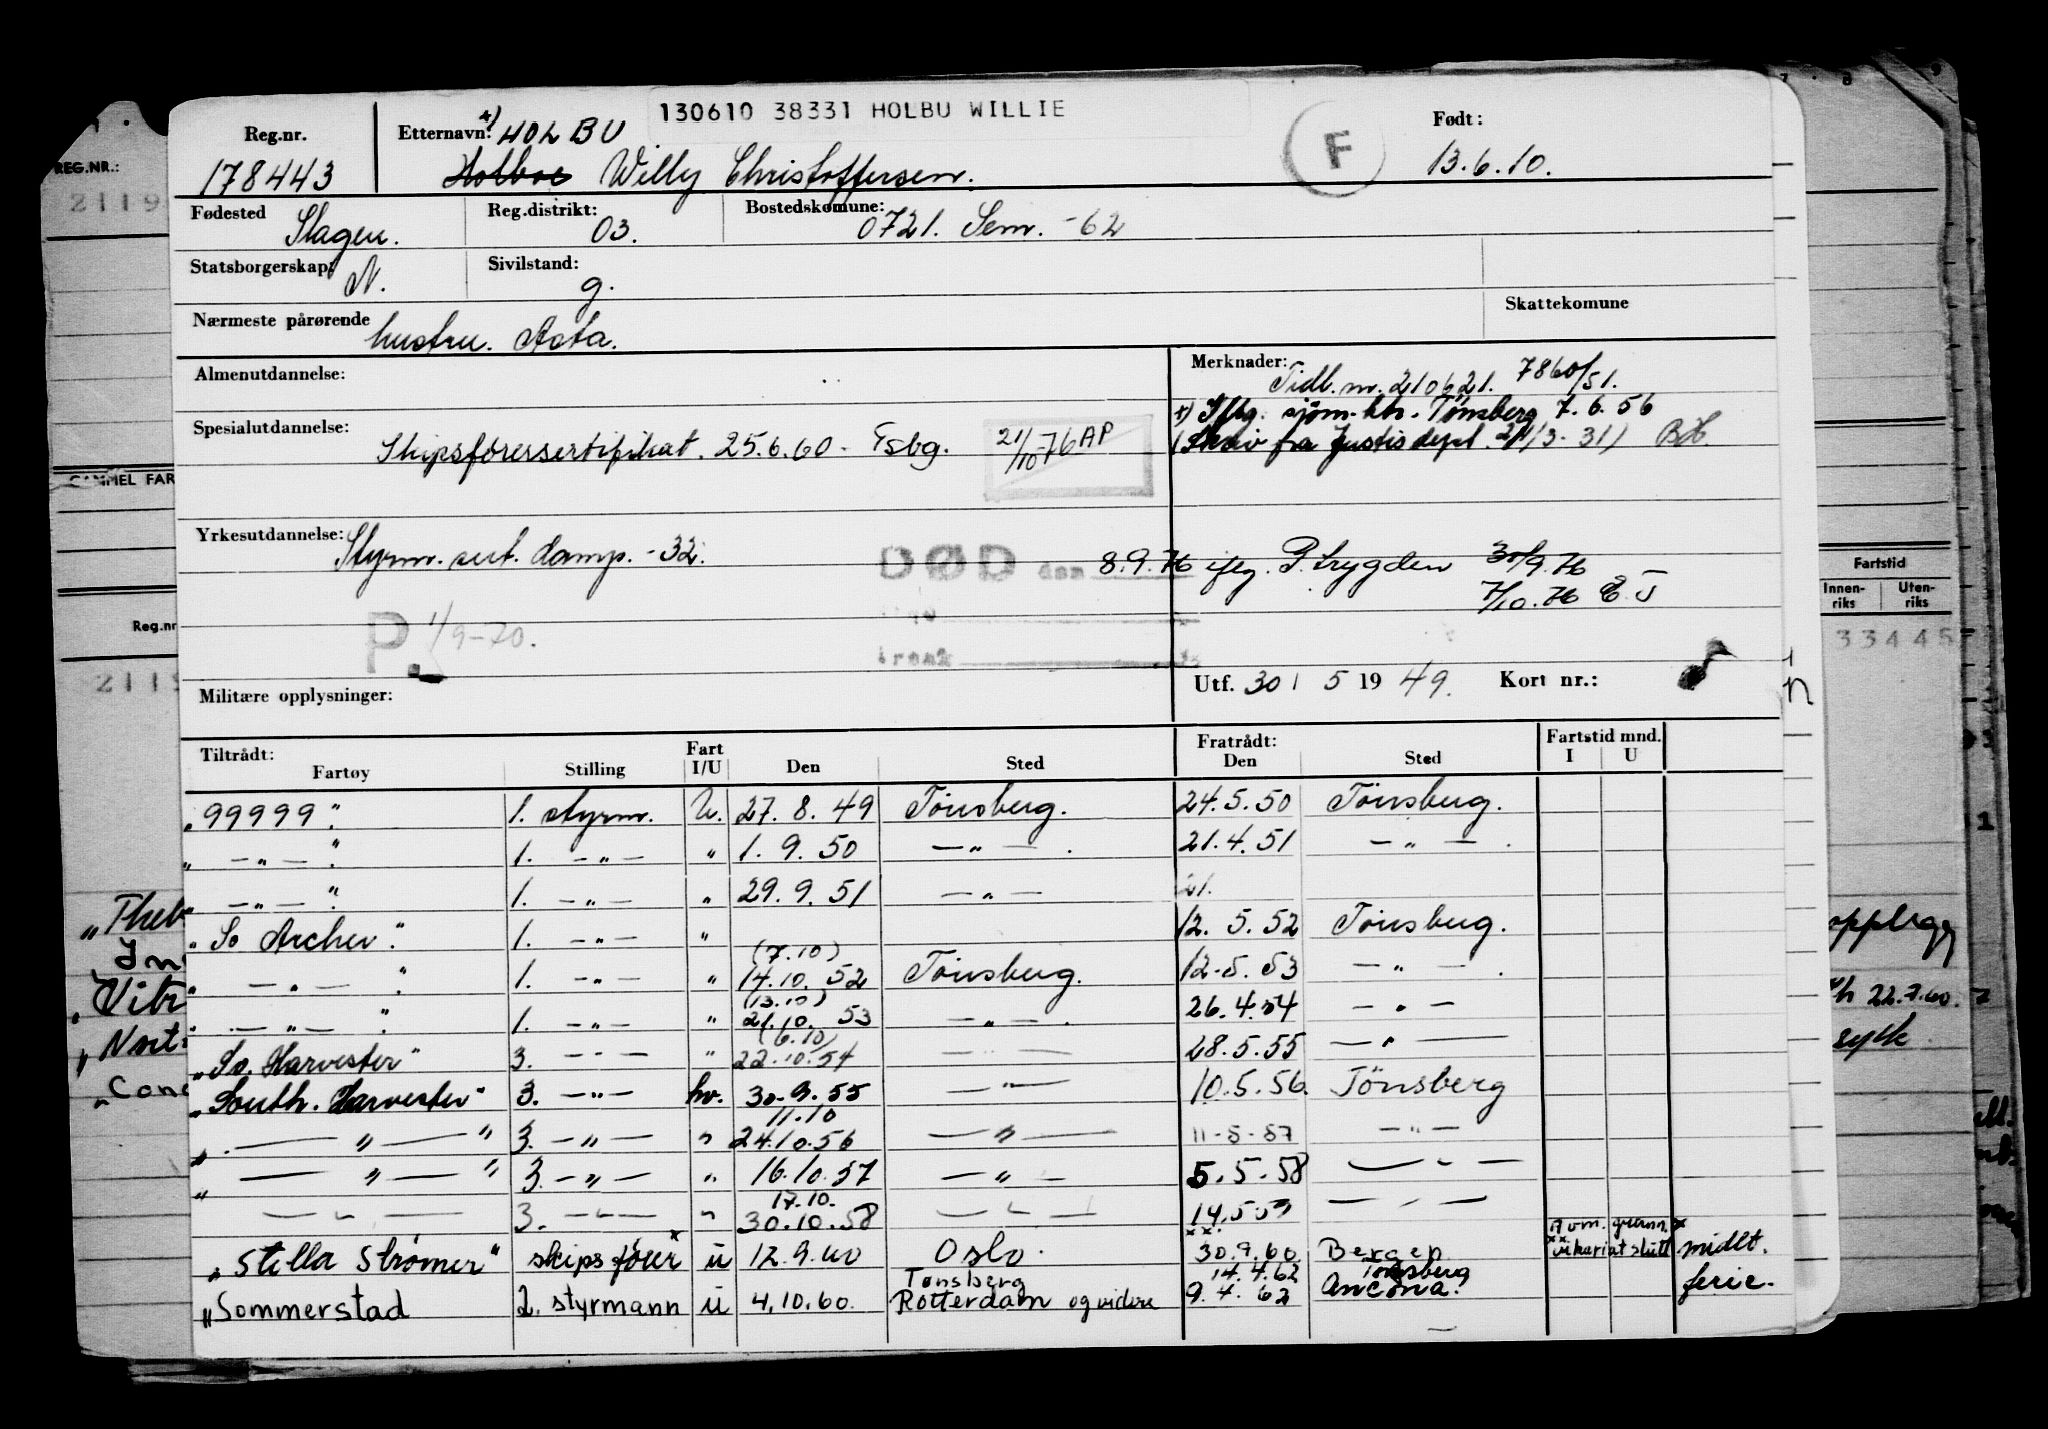 130610 38331 HOLBU WILLIE
Reg.nr. Etternavn: HOLBU Født:
178443 Holboe Willy Christoffersen. F 13.6.10.
Fødested Slagen. Reg.distrikt: 03. Bostedskomune: 0721. Sem. -62
Statsborgerskap: N. Sivilstand: g.
Skattekomune
Nærmeste pårørende hustru. Asta.
Almenutdannelse: Merknader: Tidl. nr. 210621. 7860/51.
x) Iflg. sjøm.ktr. Tønsberg 7.6.56
Spesialutdannelse: Skipsførersertifikat. 25.6.60 - Tsbg. 21/10-76 AP
(Skriv fra Justisdept. 21/3-31) BH.
Yrkesutdannelse: Styrm. sert. damp. -32.
DØD den 8.9.76 iflg. P.trygden 30/9.76
7/10.76 E.J
P. 1/9-70.
Utf. 30 / 5 19 49. Kort nr.:
Militære opplysninger:
Tiltrådt: Fart Fratrådt: Fartstid mnd.
Fartøy Stilling I/U Den Sted Den Sted I U
"99999" 1. styrm. U. 27.8.49 Tönsberg. 24.5.50 Tönsberg.
" — " — " 1. — " — " 1.9.50 — " — . 21.4.51 — " — .
" — " — " 1. — " — " 29.9.51 — " — 21.
"So Archer" 1. — " — " 12.5.52 Tönsberg.
(7.10)
" — " — " 1. — " — " 14.10.52 Tönsberg. 12.5.53 — " — .
(13.10)
" — " — " 1. — " — " 21.10.53 — " — . 26.4.54 — " —
(6.10)
"So. Harvester" 3. — " — " 22.10.54 — " — 28.5.55 — " —
"South. Harvester" 3. — " — hv. 30.9.55 — " — 10.5.56. Tönsberg
11.10
" — " — " 3. — " — " 24.10.56 — " — 11-5-57 — " —
" — " — " 3. — " — " 16.10.57 — " — 5.5.58 — " —
17.10.
— " — 3. — " — " 30.10.58 — " — 14.5.59 — " —
"Stella Strömer" skipsfører x u 12.9.60 Oslo. xx 30.9.60 Bergen xx vikariat slutt x midlt.
Tønsberg 14.4.62 Tønsberg
"Sommerstad 2. styrmann u 4.10.60. Rotterdam og videre 9.4.62 Ancona. ferie.
REG.NR.:
2119
Reg.nr
2119
Fartstid
Innen-
riks
Uten-
riks
33445
"Theb
"Nort
opplegg
22.7.60.
syk